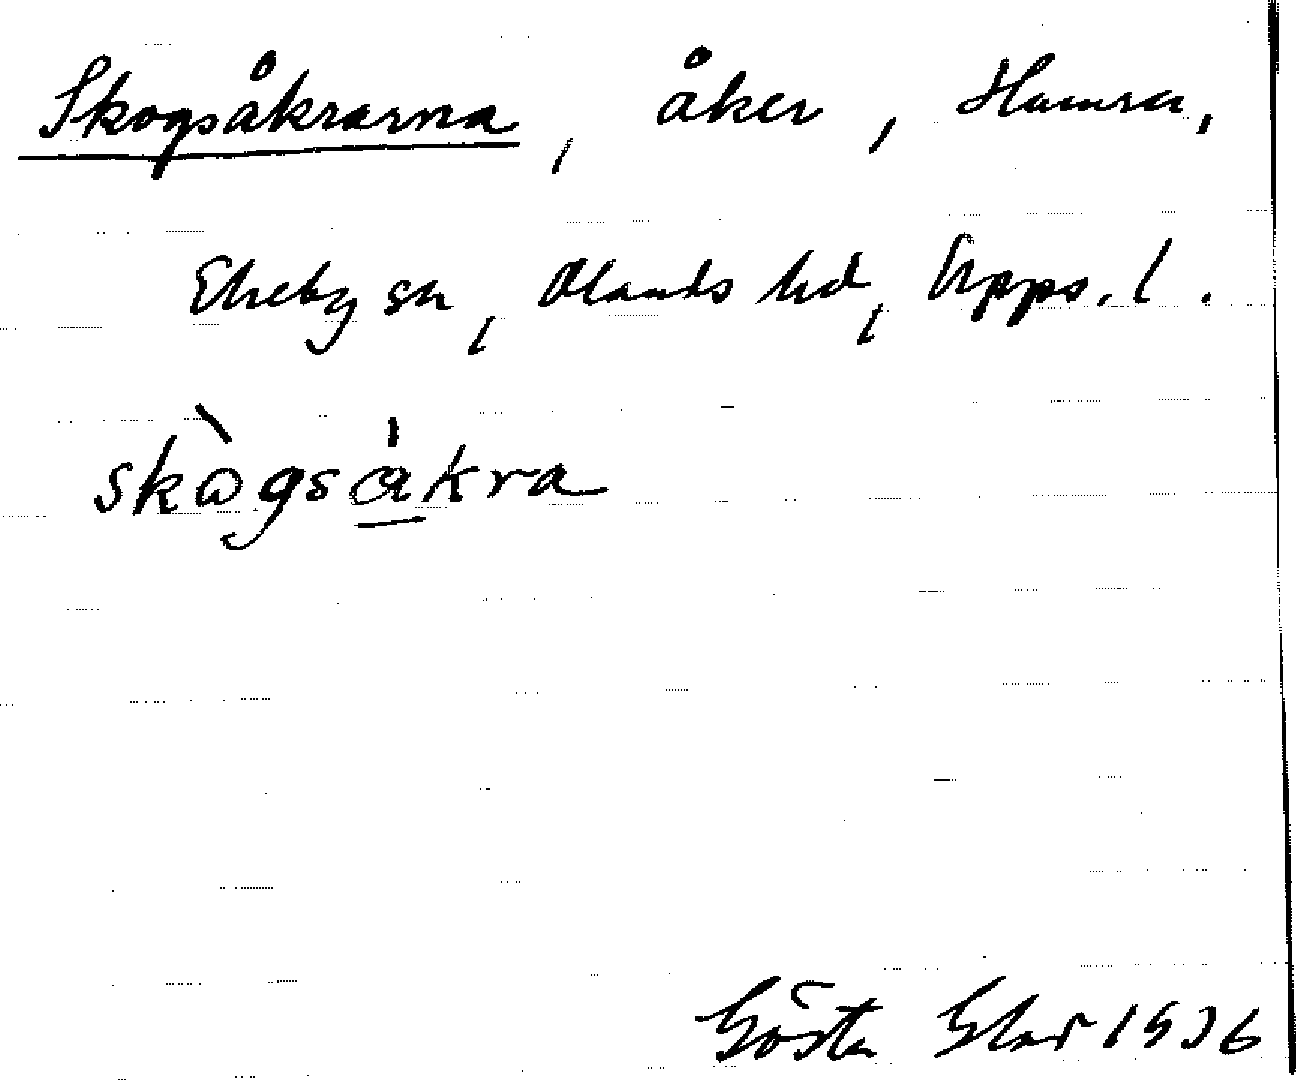 Skogsåkrarna, åker, Hamra,
Ekeby sn, Olands hd, Upps. l.
skògsákra
Gösta 1936